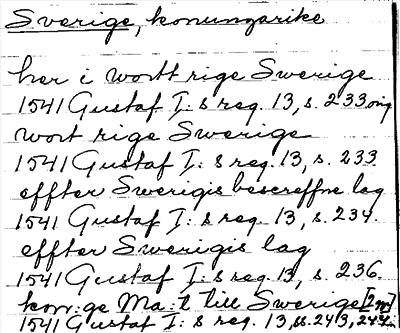 Sverige, konungarike
her i wortt rige Swerige
1541 Gustaf I: s reg. 13, s. 233 
wort rige Swerige
1541 Gustaf I: s reg. 13, s. 233
effter Swerigis bescreffne lag
1541 Gustaf I: s reg. 13, s. 234.
effter Swerigis lag
1541 Gustaf I: s reg. 13, s. 236.
kon:ge Ma:t till Swerige
1541 Gustaf I: s reg. 13, ss. 243, 244.